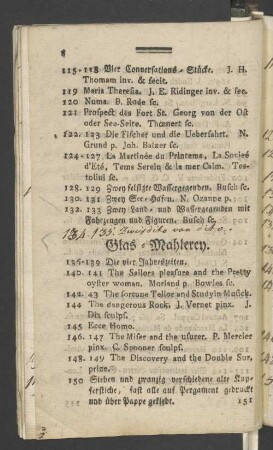 8
115-118 Vier Conversations-Stücke. J. H.
Thomam inv. & fecit.
119 Maria Theresia. J. E. Ridinger inv. & fec.
120 Numa. B. Rode sc.
121 Prospect des Fort St. Georg von der Ost
oder See-Seite. Thœnert sc.
122. 123 Die Fischer und die Ueberfahrt. N.
Grund p. Joh. Balzer sc.
124-127 La Martinée du Printems, La Soyieé
d'Eté, Tems Serein & la mer Calm. Tes-
tolini sc.
128. 129 Zwey felsigte Wassergegenden. Busch sc.
130. 131 Zwey See-Hafen. N. Ozanne p.
132. 133 Zwey Land- und Wassergegenden mit
Fahrzeugen und Figuren. Busch sc.
134. 135. Zwey dito von dito.
Glas-Mahlerey.
136-139 Die vier Jahrszeiten.
140. 141 The Sailors pleasure and the Pretty
oyster woman. Morland p. Bowles sc.
142. 43 The fortune Tellor and Studyin Musick.
144 The dangerous Rook. J. Vernet pinx. J.
Dix sculps.
145 Ecce Homo.
146. 147 The Miser and the usurer. P. Mercier
pinx. C. Spooner sculps.
148. 149 The Discovery and the Double Sur-
prize.
150 Sieben und zwanzig verschiedene alte Kup-
ferstiche, fast alle auf Pergament gedruckt
und über Pappe geklebt.
151